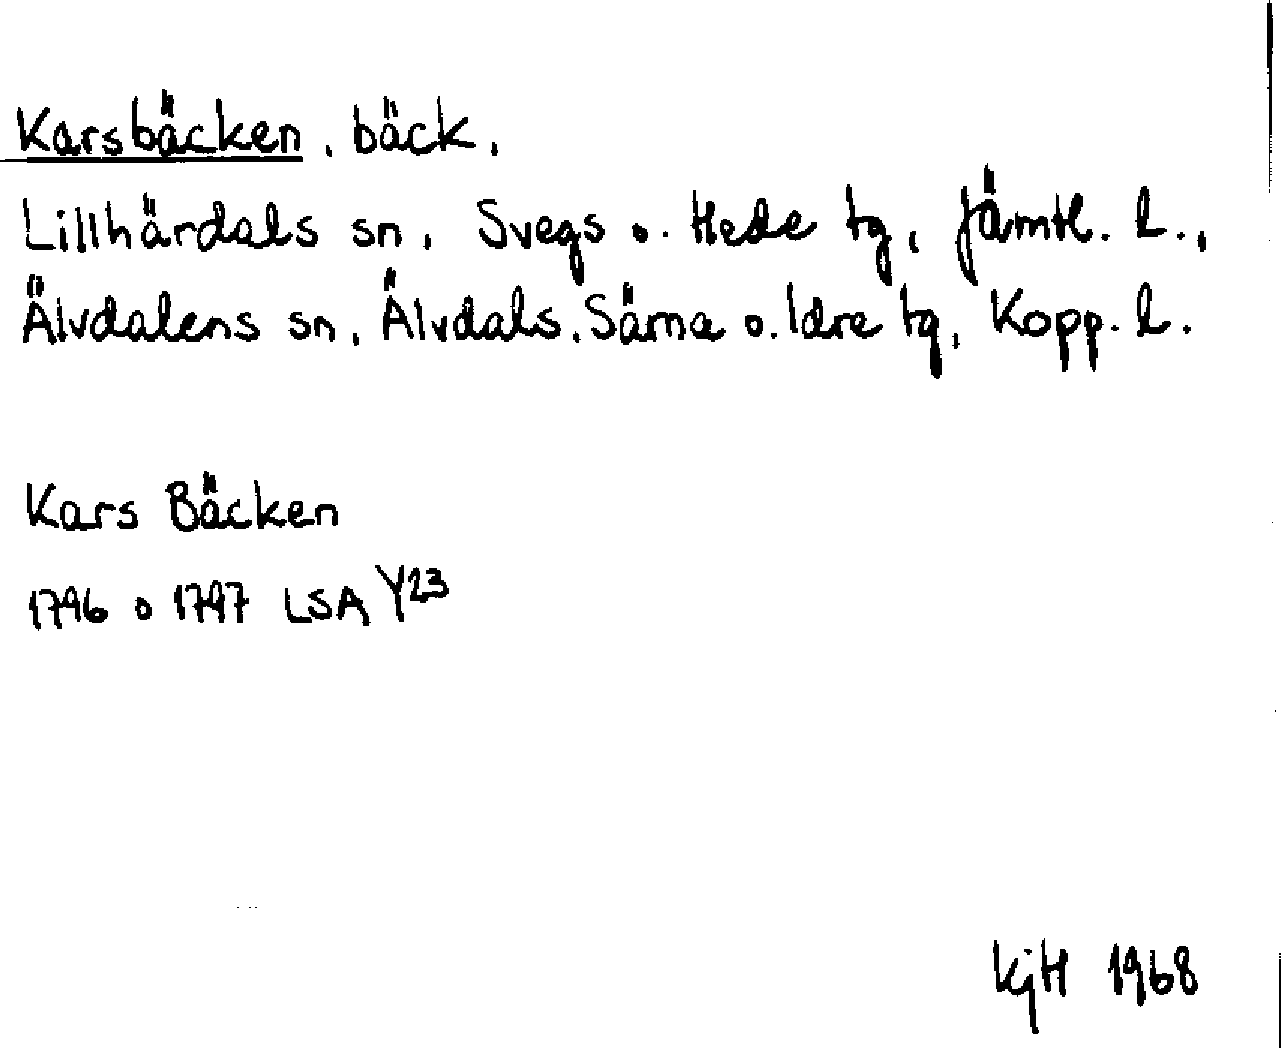 Karsbäcken, bäck,
Lillhärdals sn, Svegs o. Hede tg, Jämtl. l.,
Älvdalens sn, Älvdals, Särna o. Idre tg, Kopp. l.
Kars Bäcken
1796 o 1797 LSA Y23
KjH 1968